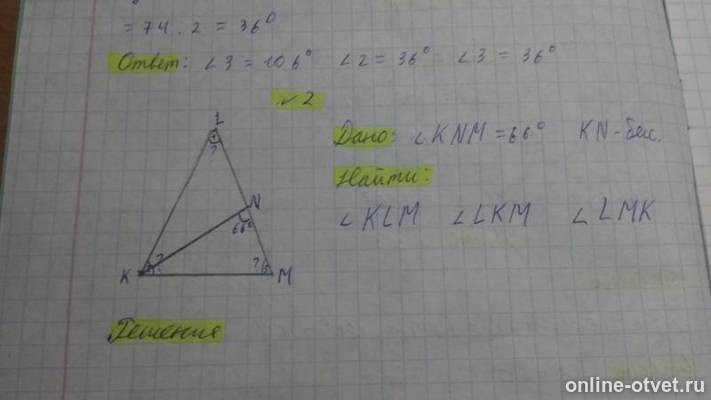 = 74 : 2 = 36°
Ответ: ∠3 = 106° ∠2 = 36° ∠3 = 36°
№2
Дано: ∠KNM = 66° KN - бис.
Найти:
∠KLM ∠LKM ∠LMK
L
?
N
66°
K ? ? M
Решение
online-otvet.ru